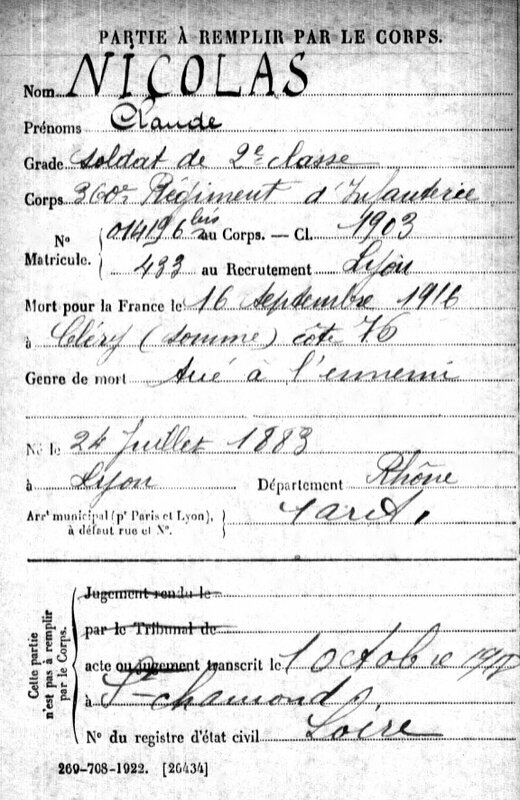 PARTIE À REMPLIR PAR LE CORPS.
Nom NICOLAS
Prénoms Claude
Grade Soldat de 2e classe
Corps 360e Régiment d'Infanterie
N° Matricule. { 014196 bis au Corps. — Cl. 1903
433 au Recrutement Lyon
Mort pour la France le 16 Septembre 1916
à Cléry (Somme) côte 76
Genre de mort tué à l'ennemi
Né le 24 Juillet 1883
à Lyon Département Rhône
Arrt municipal (pr Paris et Lyon), à défaut rue et N°. } 1 arrt.
Cette partie n'est pas à remplir par le Corps.
Jugement rendu le
par le Tribunal de
acte ou jugement transcrit le 1 Octobre
à St-Chamond
N° du registre d'état civil Loire
269-708-1922. [26434]